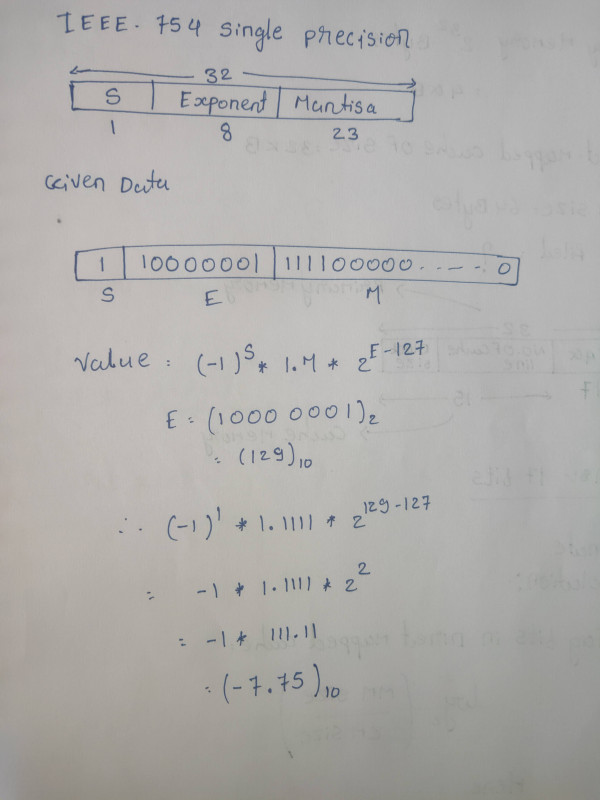 IEEE. 754 single precision
32
S Exponent Mantisa
1 8 23
Given Data
1 10000001 111100000..--. 0
S E M
Value = (-1)^S * 1.M * 2^E-127
E = (1000 0001)2
= (129)10
∴ (-1)^1 * 1.1111 * 2^129-127
= -1 * 1.1111 * 2^2
= -1 * 111.11
= (-7.75)10